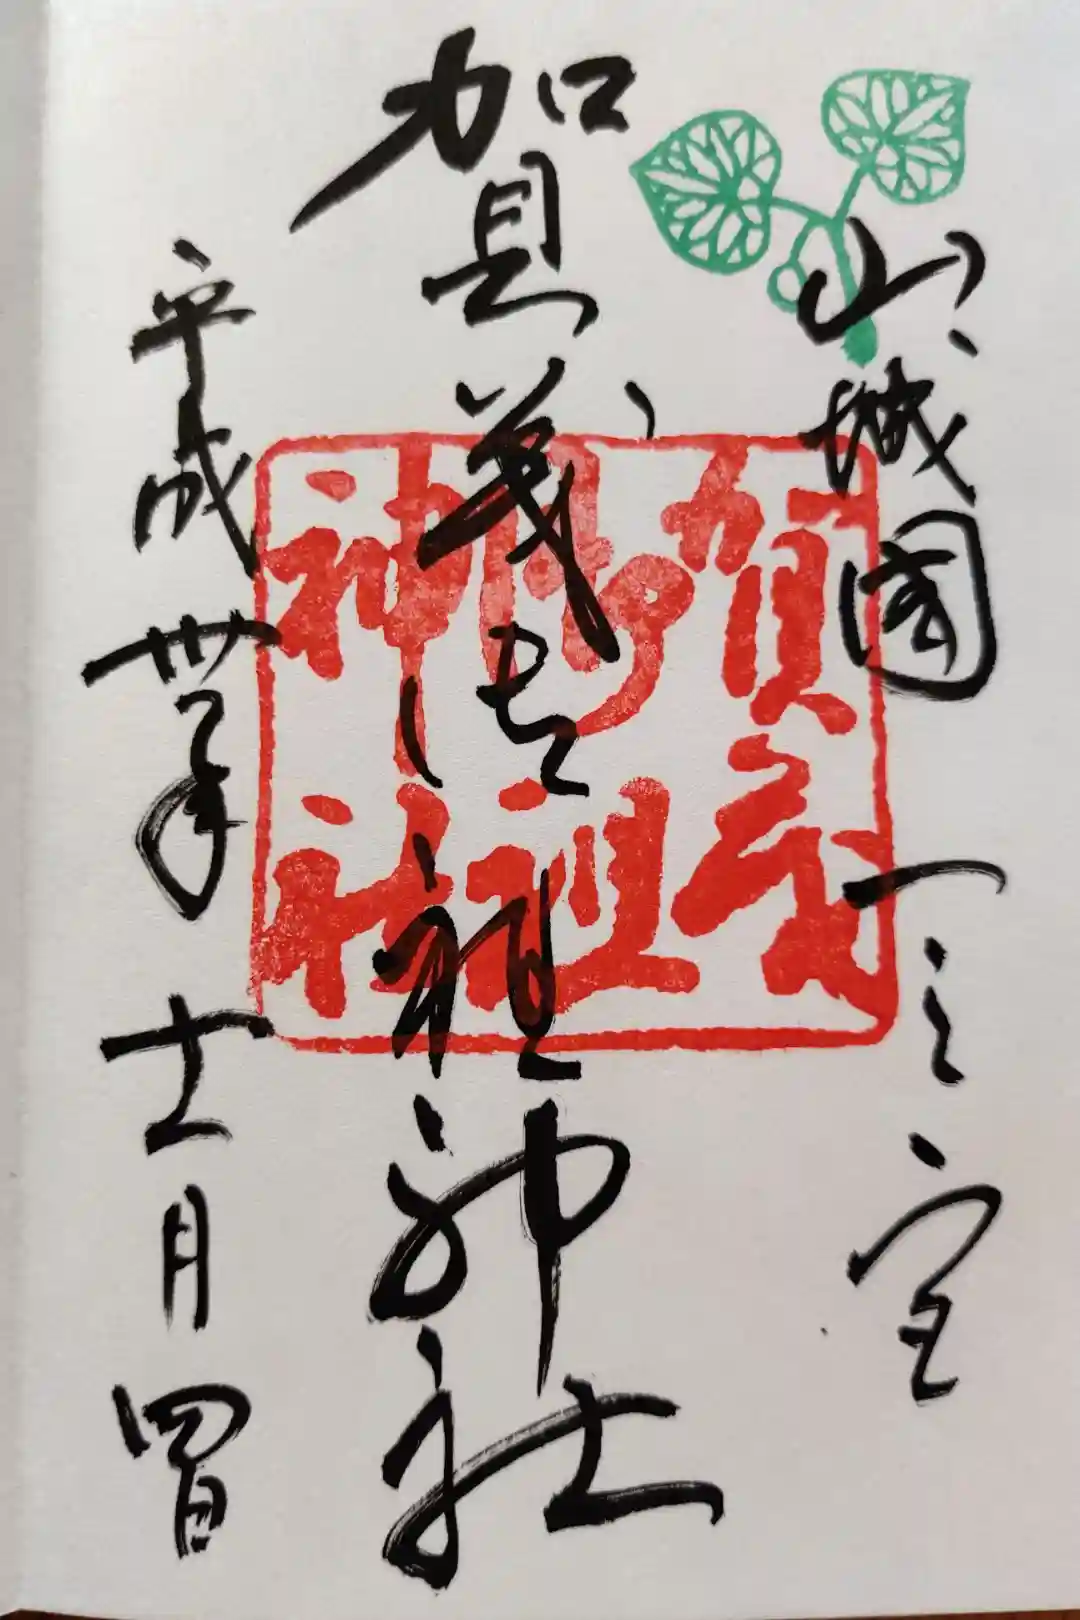 山城國一之宮
賀茂御祖神社
平成丗年十一月四日
賀茂
御祖
神社